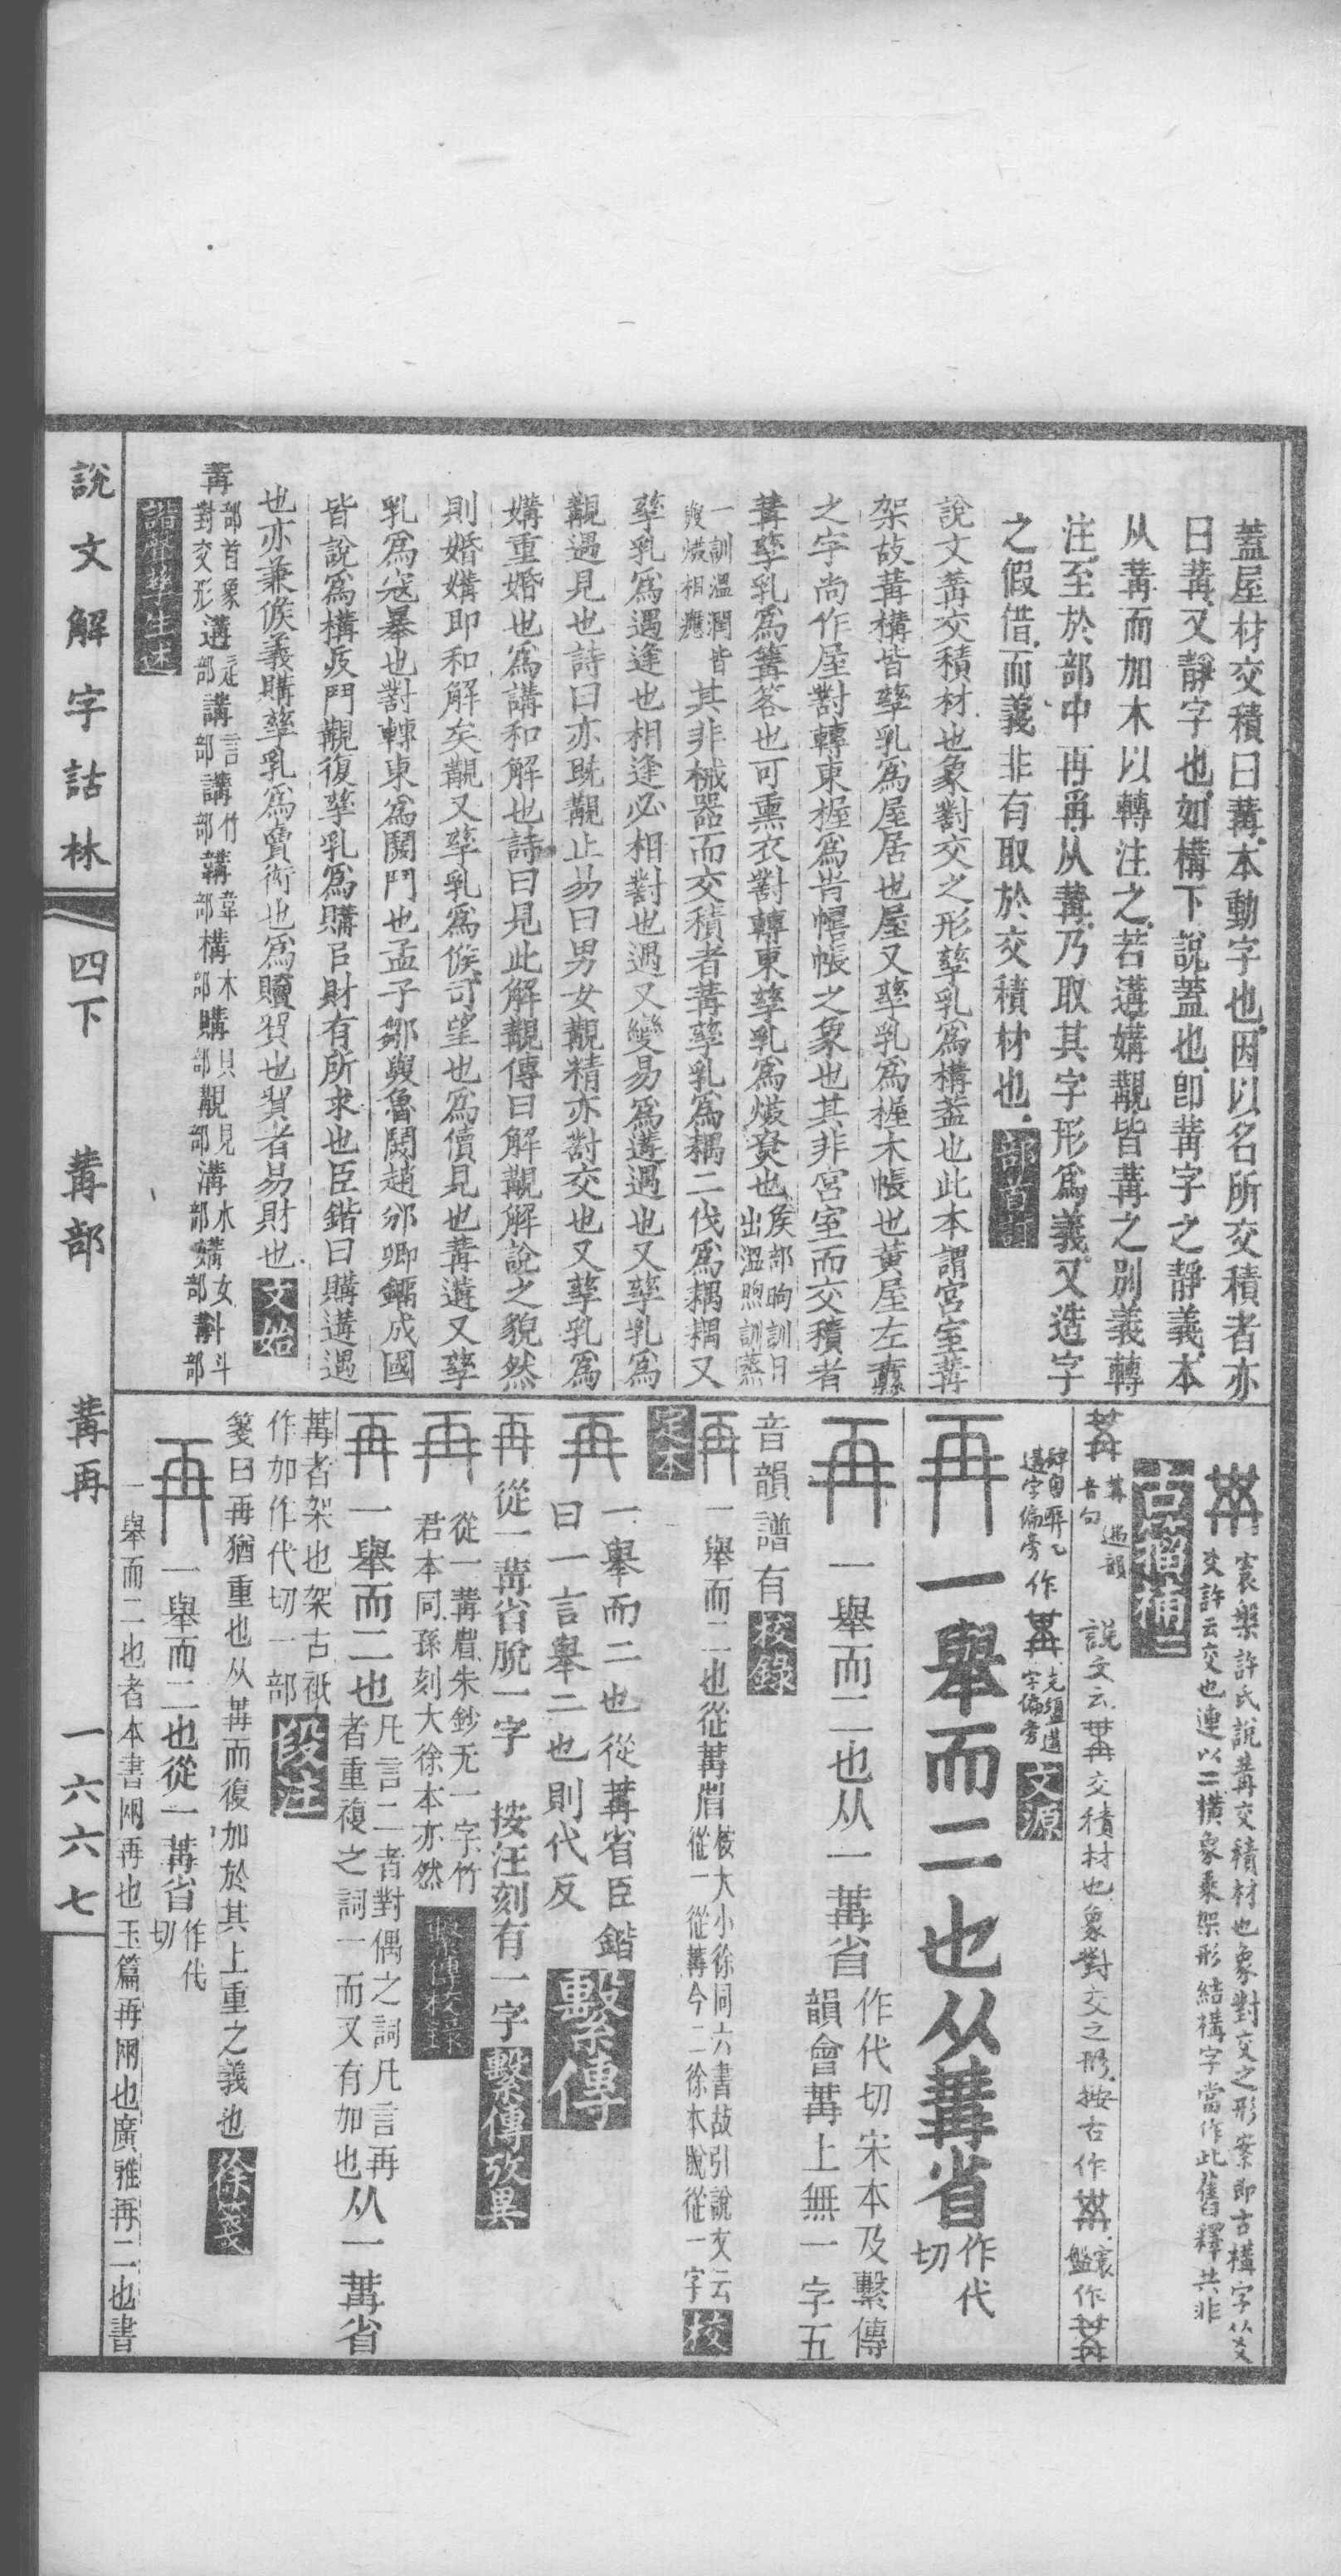 蓋屋材交積曰冓本動字也因以名所交積者亦
曰冓又靜字也如構下說蓋也卽冓字之靜義本
从冓而加木以轉注之若遘媾覯皆冓之別義轉
注至於部中再爯从冓乃取其字形爲義又造字
之假借而義非有取於交積材也 部首訂
說文冓交積材也象對交之形孳乳爲構蓋也此本謂宮室冓
架故冓構皆孳乳爲屋居也屋又孳乳爲楃木帳也黃屋左纛
之字尚作屋對轉東楃爲㡉幬帳之象也其非宮室而交積者
冓孳乳爲篝笿也可熏衣對轉東孳乳爲煗㷇也
一訓溫潤皆
其非械器而交積者冓孳乳爲耦二伐爲耦耦又
孳乳爲遇逢也相逢必相對也遇又變易爲遘遇也又孳乳爲
覯遇見也詩曰亦既覯止易曰男女覯精亦對交也又孳乳爲
媾重婚也爲講和解也詩曰見此解覯傳曰解覯解說之貌然
則婚媾卽和解矣覯又孳乳爲候司望也爲儥見也冓遘又孳
乳爲寇暴也對轉東爲鬨鬥也孟子鄒與魯鬨趙邠卿鍤成國
皆說爲構兵鬥覯復孳乳爲購㠯財有所求也臣鍇曰購遘遇
也亦兼候義購孳乳爲賣衒也爲贖貿也貿者易財也 文始
冓部首象對交形遘辵部講言部篝竹部韝韋部構木部購貝部覯見部溝水部媾女部斠斗部
諧聲孳生述
寰槃許氏說冓交積材也象對交之形案卽古構字从
交許云交也連以二橫象乘架形結構字當作此舊釋共非
古籀補
冓 冓音句 遇韻 說文云冓交積材也象對交之形按古作 寰盤作
遘字偏旁作 克盨遘字偏旁 文源
再 一舉而二也从冓省 作代切
再 一舉而二也从一冓省 作代切宋本及繫傳韻會冓上無一字五
音韻譜有 校錄
再 一舉而二也從冓省 校大小徐同六書故引說文云從一從冓今二徐本脫從一字 校
定本
再 一舉而二也從冓省臣鍇曰一言舉二也則代反 繫傳
再 從一冓省脫一字 按汪刻有一字 繫傳攷異
再 從一冓省朱鈔无一字竹君本同孫刻大徐本亦然 繫傳校錄
再 一舉而二也 凡言二者對偶之詞凡言再者重複之詞一而又有加也 从一冓省
冓者架也架古衹作加作代切一部 段注
箋曰再猶重也从冓而復加於其上重之義也 徐箋
再 一舉而二也從一冓省 作代切
一舉而二也者本書㒳再也玉篇再㒳也廣雅再二也書
說文解字詁林 四下 冓部 冓再 一六六七